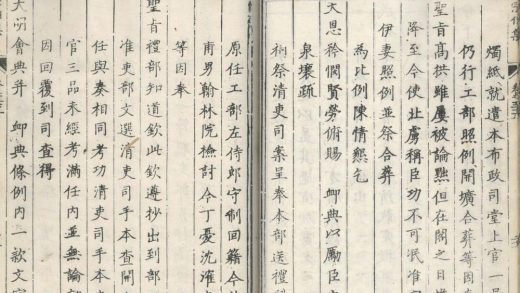 燭紙就遣本布政司堂上官一員
仍行工部照例開壙合葬等因奉
聖旨高拱雖屢被論黜但在閣之日
降至今使北虜稱臣功不可泯准
伊妻照例並祭合葬
為比例陳情懇乞
天恩矜憫賢勞俯賜卹典以勵臣
泉壤疏
祠祭清吏司案呈奉本部送禮科
原任工部左侍郎守制回籍今
甫男翰林院檢討今丁憂沈
等因奉
聖旨禮部知道欽此欽遵抄出到部
准吏部文選清吏司手本查開
任與奏相同考功清吏司手本
官三品未經考滿任內並無論
因回覆到司查得
大明會典并卹典條例內一款文官